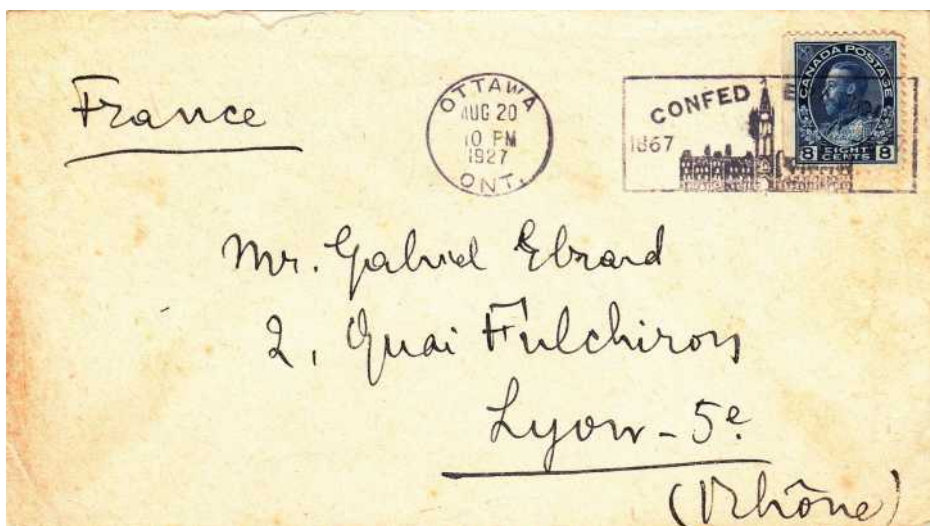 France
OTTAWA
AUG 20
10 PM
1927
ONT.
CONFED
1867
CANADA POSTAGE
8 EIGHT CENTS 8
Mr. Gabriel Ebrard
2, Quai Fulchiron
Lyon - 5e
(Rhône)